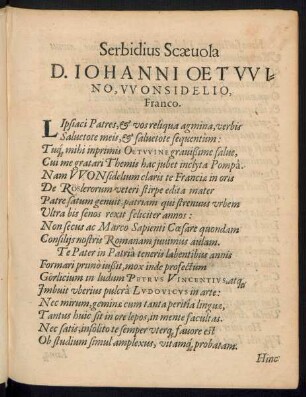 Serbidius Scæuola
D. IOHANNI OETVVI-
NO, VVONSIDELIO,
Franco.
LIpsiaci Patres, & vos reliqua agmina, verbis
Saluetote meis, & saluetote sequentium:
Tuq́; mihi inprimis OETVVINE grauißime salue,
Cui me gratari Themis hac jubet inclyta Pompâ.
Nam VVONsidelum claris te Francia in oris
De RÖslerorum veteri stirpe edita mater
Patre satum genuit, patriam qui strenuus vrbem
Vltra bis senos rexit feliciter annos:
Non secus ac Marco Sapienti Cæsare quondam
Consilijs nostris Romanam juuimus aulam.
Te Pater in Patria teneris labentibus annis
Formari primò jußit, mox inde profectum
Görlicium in ludum PETRVS VINCENTIVS, atq;
Imbuit vberius pulcrâ LVDOVICVS in arte:
Nec mirum, geminæ cum tanta peritia linguæ,
Tantus huic sit in ore lepos, in mente facultas.
Nec satis: insolito te semper vterq; fauore est
Ob studium simul amplexus, vitamq́; probatam.
Hinc